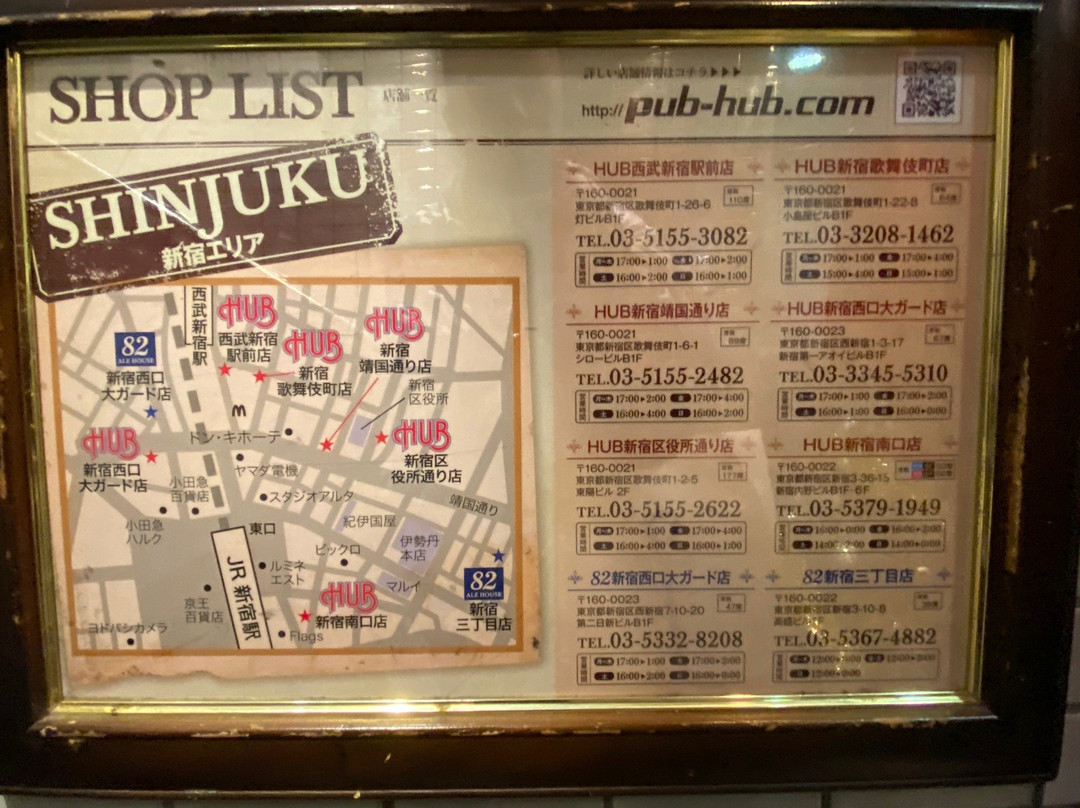 SHOP LIST
店舗一覧
詳しい店舗情報はコチラ▶▶▶
http://pub-hub.com
SHINJUKU
新宿エリア
西武新宿駅
HUB
西武新宿
駅前店
HUB
新宿
歌舞伎町店
HUB
新宿
靖国通り店
82
ALE HOUSE
新宿西口
大ガード店
新宿
区役所
HUB
新宿区
役所通り店
ドン・キホーテ
HUB
新宿西口
大ガード店
ヤマダ電機
小田急
百貨店
スタジオアルタ
靖国通り
小田急
ハルク
東口
紀伊国屋
伊勢丹
本店
ビックロ
JR 新宿駅
ルミネ
エスト
マルイ
82
ALE HOUSE
新宿
三丁目店
京王
百貨店
HUB
新宿南口店
ヨドバシカメラ
Flags
HUB西武新宿駅前店
〒160-0021
東京都新宿区歌舞伎町1-26-6
灯ビルB1F
110席
TEL.03-5155-3082
営業時間
月~木 17:00▶1:00 17:00▶2:00
土 16:00▶2:00 日 16:00▶1:00
HUB新宿歌舞伎町店
〒160-0021
東京都新宿区歌舞伎町1-22-8
小島屋ビルB1F
TEL.03-3208-1462
営業時間
月~木 17:00▶1:00 金 17:00▶4:00
土 15:00▶4:00 日 15:00▶1:00
HUB新宿靖国通り店
〒160-0021
東京都新宿区歌舞伎町1-6-1
シロービルB1F
TEL.03-5155-2482
営業時間
月~木 17:00▶2:00 金 17:00▶4:00
土 16:00▶4:00 日 16:00▶2:00
HUB新宿西口大ガード店
〒160-0023
東京都新宿区西新宿1-3-17
新宿第一アオイビルB1F
TEL.03-3345-5310
営業時間
月~木 17:00▶1:00 金 17:00▶2:00
土 16:00▶1:00 日 16:00▶0:00
HUB新宿区役所通り店
〒160-0021
東京都新宿区歌舞伎町1-2-5
東陽ビル 2F
177席
TEL.03-5155-2622
営業時間
月~木 17:00▶1:00 金 17:00▶4:00
土 16:00▶4:00 日 16:00▶1:00
HUB新宿南口店
〒160-0022
東京都新宿区新宿3-36-15
新宿内野ビルB1F・6F
TEL.03-5379-1949
営業時間
16:00▶0:00 16:00▶2:00
14:00▶2:00 14:00▶0:00
82新宿西口大ガード店
〒160-0023
東京都新宿区西新宿7-10-20
第二日新ビルB1F
47席
TEL.03-5332-8208
営業時間
月~木 17:00▶1:00 金 17:00▶2:00
土 16:00▶2:00 日 16:00▶0:00
82新宿三丁目店
〒160-0022
東京都新宿区新宿3-10-8
TEL.03-5367-4882
営業時間
12:00▶0:00